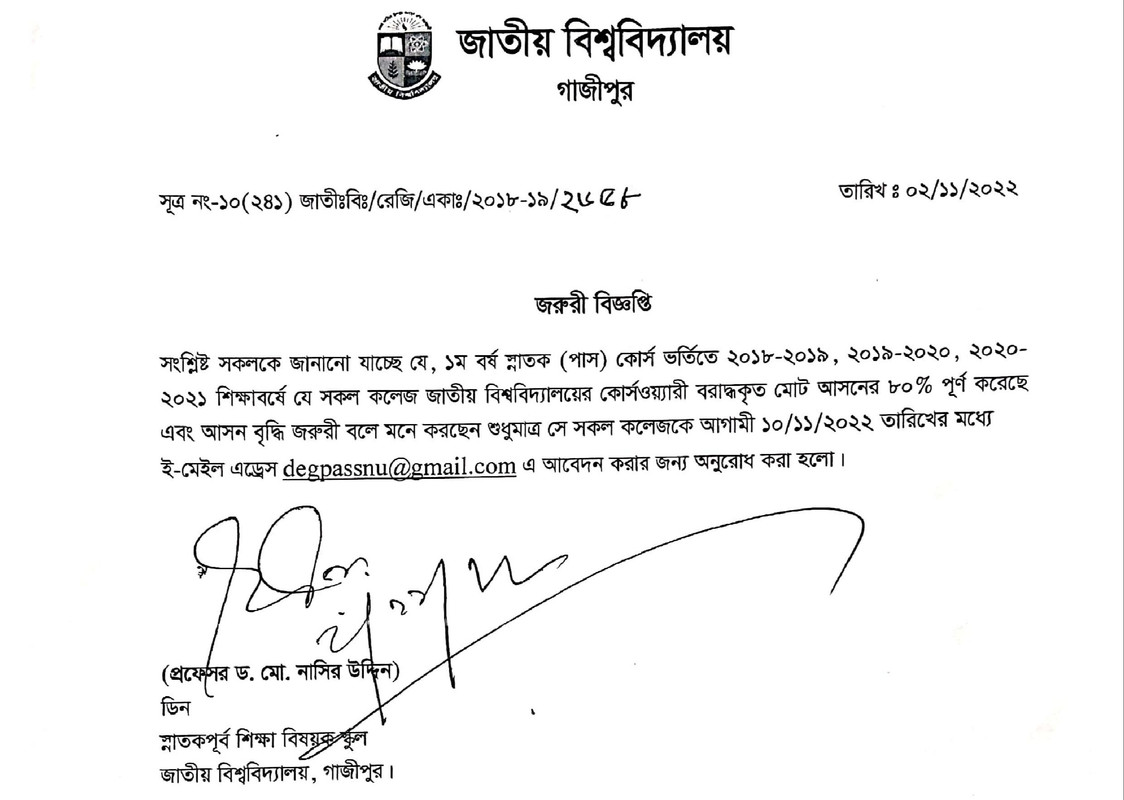 জাতীয় বিশ্ববিদ্যালয়
গাজীপুর
জাতীয় বিশ্ববিদ্যালয়
সূত্র নং-১০(২৪১) জাতীঃবিঃ/রেজি/একাঃ/২০১৮-১৯/
তারিখ ঃ ০২/১১/২০২২
জরুরী বিজ্ঞপ্তি
সংশ্লিষ্ট সকলকে জানানো যাচ্ছে যে, ১ম বর্ষ স্নাতক (পাস) কোর্স ভর্তিতে ২০১৮-২০১৯, ২০১৯-২০২০, ২০২০-
২০২১ শিক্ষাবর্ষে যে সকল কলেজ জাতীয় বিশ্ববিদ্যালয়ের কোর্সওয়্যারী বরাদ্ধকৃত মোট আসনের ৮০% পূর্ণ করেছে
এবং আসন বৃদ্ধি জরুরী বলে মনে করছেন শুধুমাত্র সে সকল কলেজকে আগামী ১০/১১/২০২২ তারিখের মধ্যে
ই-মেইল এড্রেস degpassnu@gmail.com এ আবেদন করার জন্য অনুরোধ করা হলো।
(প্রফেসর ড. মো. নাসির উদ্দিন)
ডিন
স্নাতকপূর্ব শিক্ষা বিষয়ক স্কুল
জাতীয় বিশ্ববিদ্যালয়, গাজীপুর।